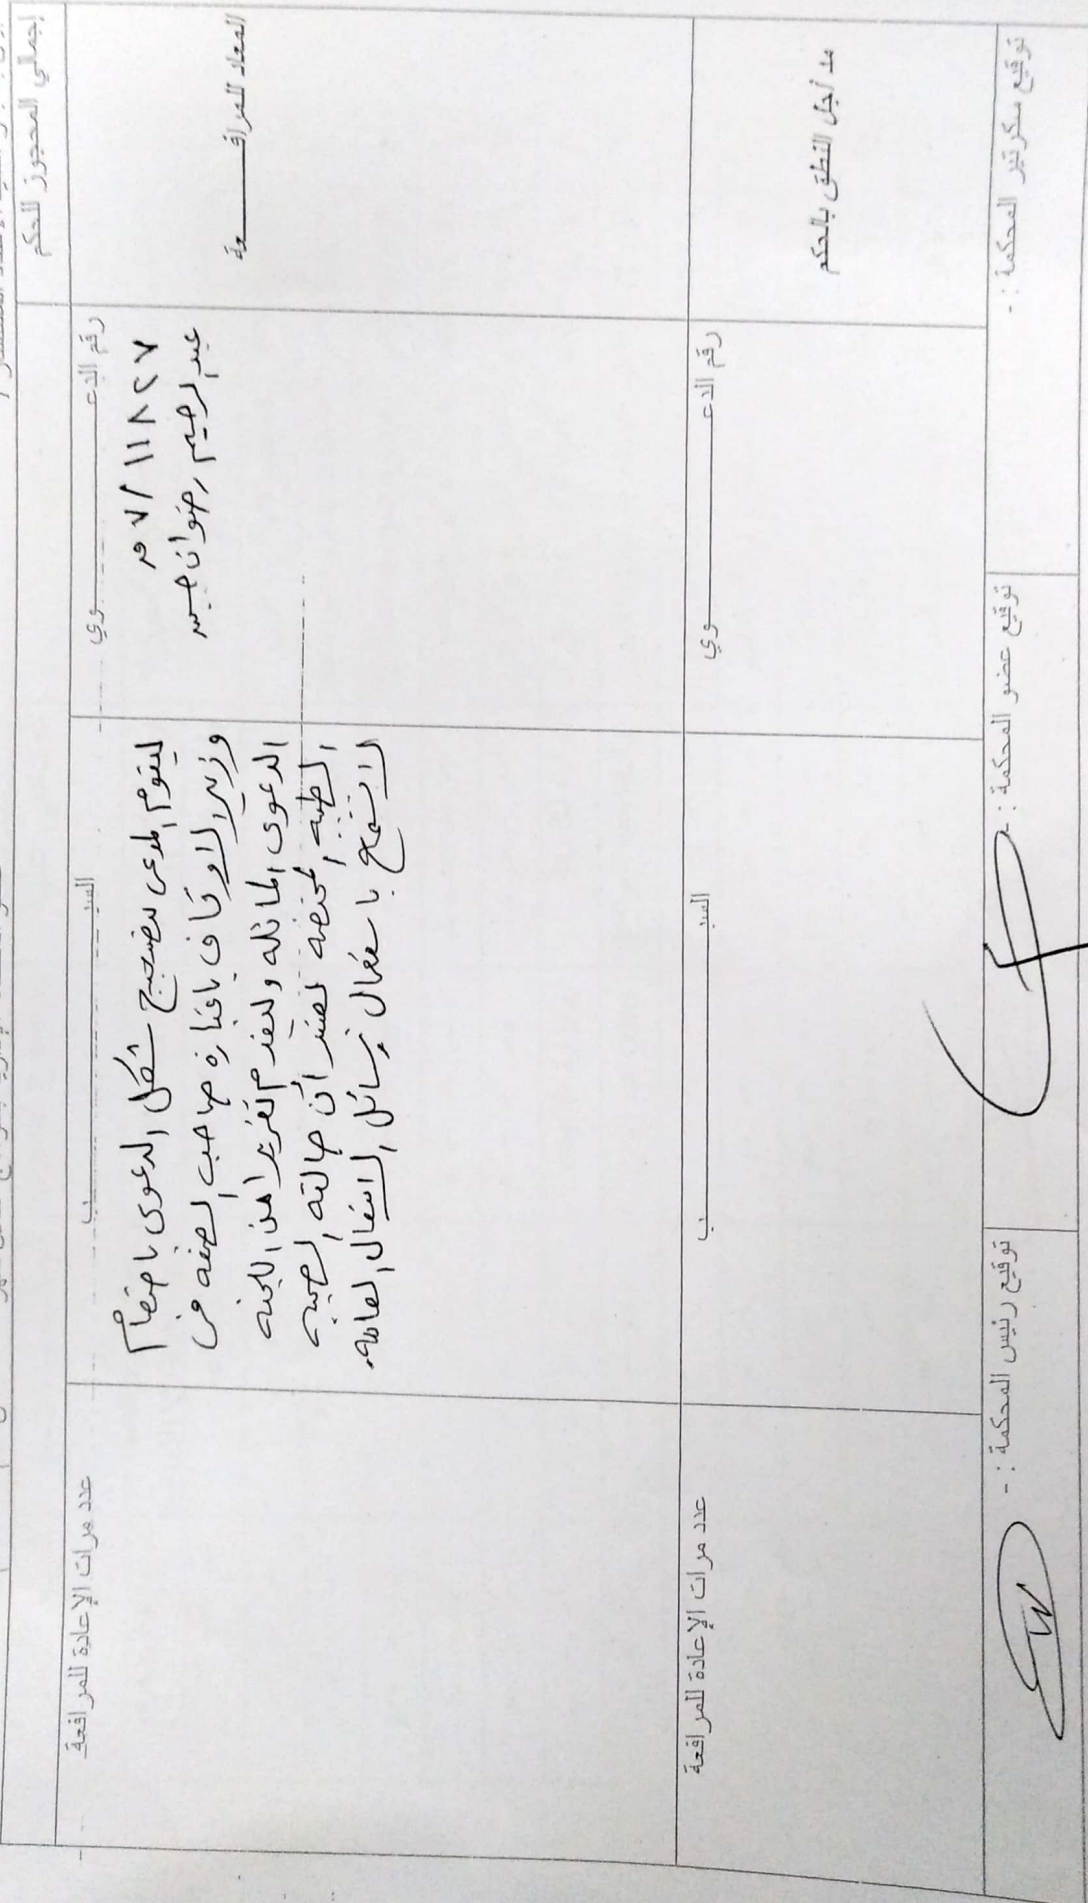 إجمالي المحجوز للحكم
المعاد للمرافعة
رقم الدعوي
١١٨٢٧ / ٧ ق
عبد الرحيم رضوان
السبب
ليقوم المدعى بتصحيح شكل الدعوى باختصام
وزير الأوقاف باعتباره صاحب الصفه فى
الدعوى الماثله وليقدم تقريرا من اللجنه
الطبيه المختصه تفيد أن حالته الصحيه
لا تسمح باستعمال وسائل الانتقال العامه.
عدد مرات الإعادة للمرافعة
مد أجل النطق بالحكم
رقم الدعوي
السبب
عدد مرات الإعادة للمرافعة
توقيع سكرتير المحكمة : -
توقيع عضو المحكمة : -
توقيع رئيس المحكمة : -